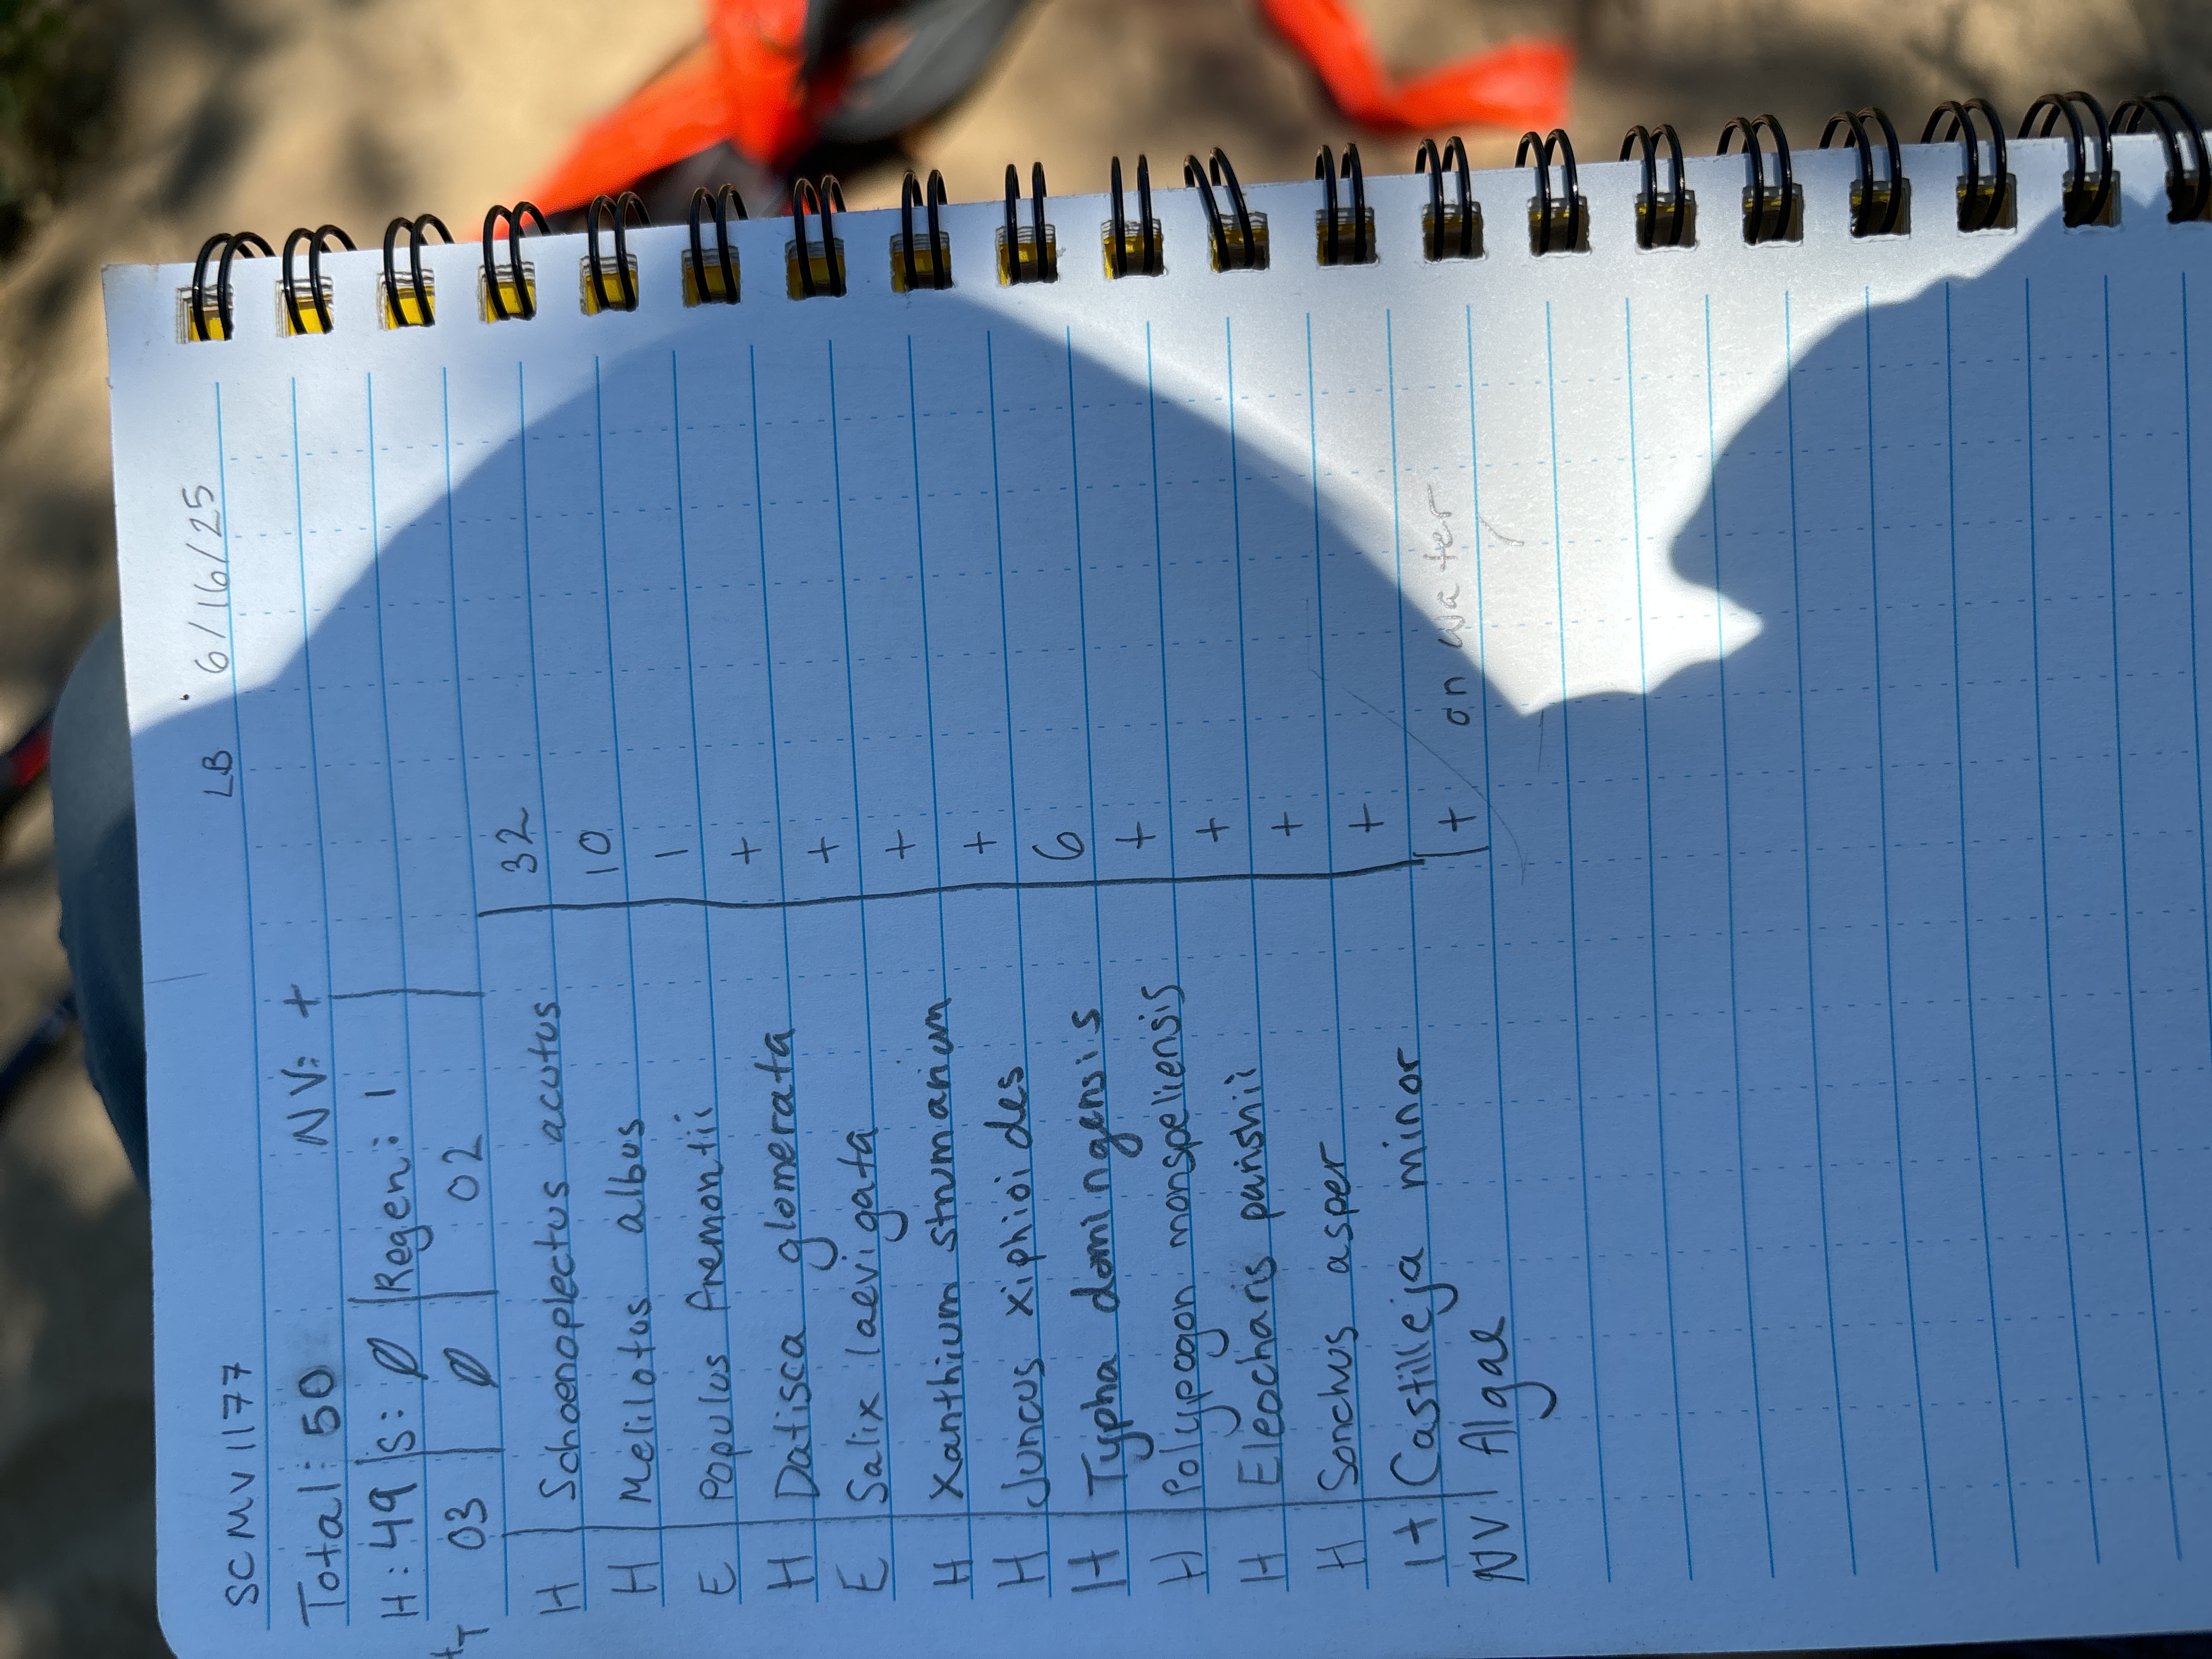 SCMV1177 LB 6/16/25
Total: 50 NV: +
H: 49 | S: Ø | Regen: 1 |
HT 03 | Ø | 02 |
H | Schoenoplectus acutus | 32
H | Melilotus albus | 10
E | Populus fremontii | 1
H | Datisca glomerata | +
E | Salix laevigata | +
H | Xanthium strumarium | +
H | Juncus xiphioides | +
H | Typha domingensis | 6
H | Polypogon monspeliensis | +
H | Eleocharis parishii | +
H | Sonchus asper | +
H | Castilleja minor | +
NV | Algae | + on water